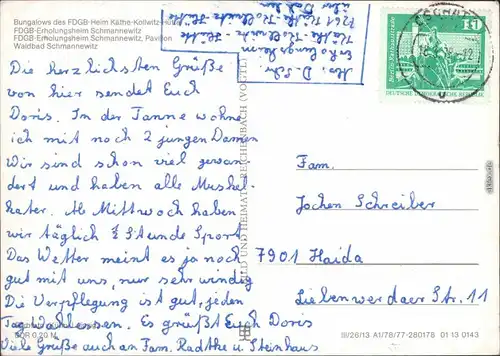 Bungalows des FDGB-Heim Käthe-Kollwitz-Hütte
FDGB-Erholungsheim Schmannewitz
FDGB-Erholungsheim Schmannewitz, Pavillon
Waldbad Schmannewitz
Erholungsheim
Käthe Kollwitz-Hütte
7261
über Dahlen
DEUTSCHE DEMOKRATISCHE REPUBLIK
Die herzlichsten Grüße
von hier sendet Euch
Doris. In der Tanne wohne
ich mit noch 2 jungen Damen
Wir sind schon viel gewan-
dert und haben alle Muskel-
kater. Ab Mittwoch haben
wir täglich ½ Stunde Sport
Das Wetter meint es ja noch
gut mit uns, nur sehr windig
Die Verpflegung ist gut, jeden
Tag Wahlessen. Es grüßt Euch Doris
Viele Grüße auch an Fam. Radtke u Steinhaus
BILD UND HEIMAT REICHENBACH (VOGTL)
Fam.
Jochen Schreiber
7901 Haida
Liebenwerdaer Str. 11
III/26/13 A1/78/77-280178 01 13 0143